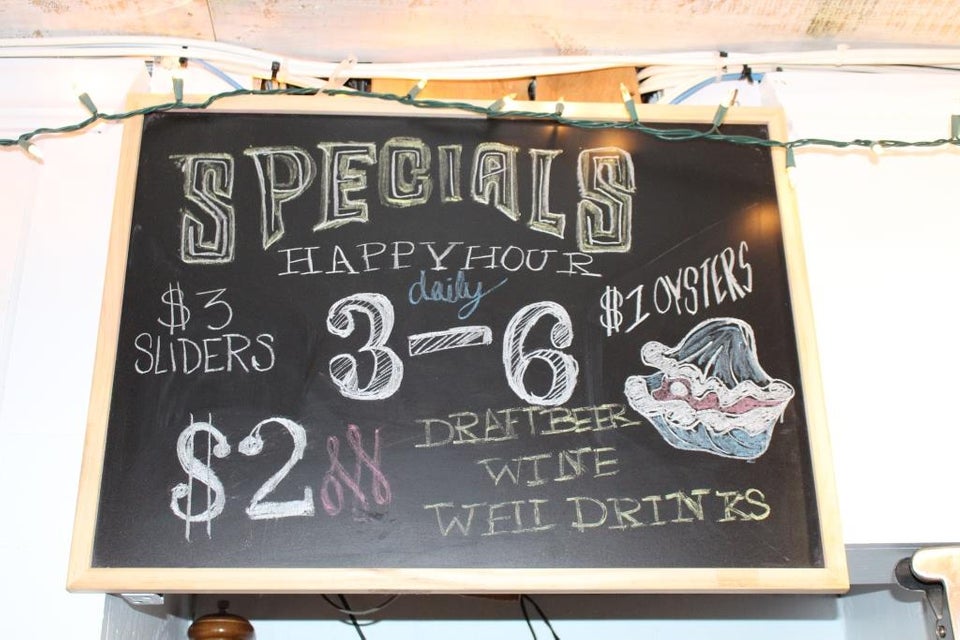 SPECIALS
HAPPY HOUR
daily
3-6
$3
SLIDERS
$1 OYSTERS
$2 off
DRAFT BEER
WINE
WELL DRINKS